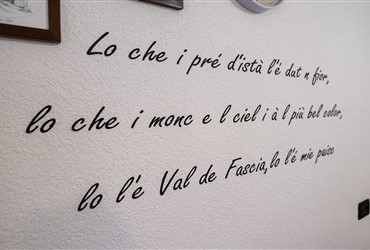 Lo che i pré d'istà l'é dut n fior,
lo che i monc e l ciel i à l più bel color,
lo l'é Val de Fascia, lo l'é mie paisc